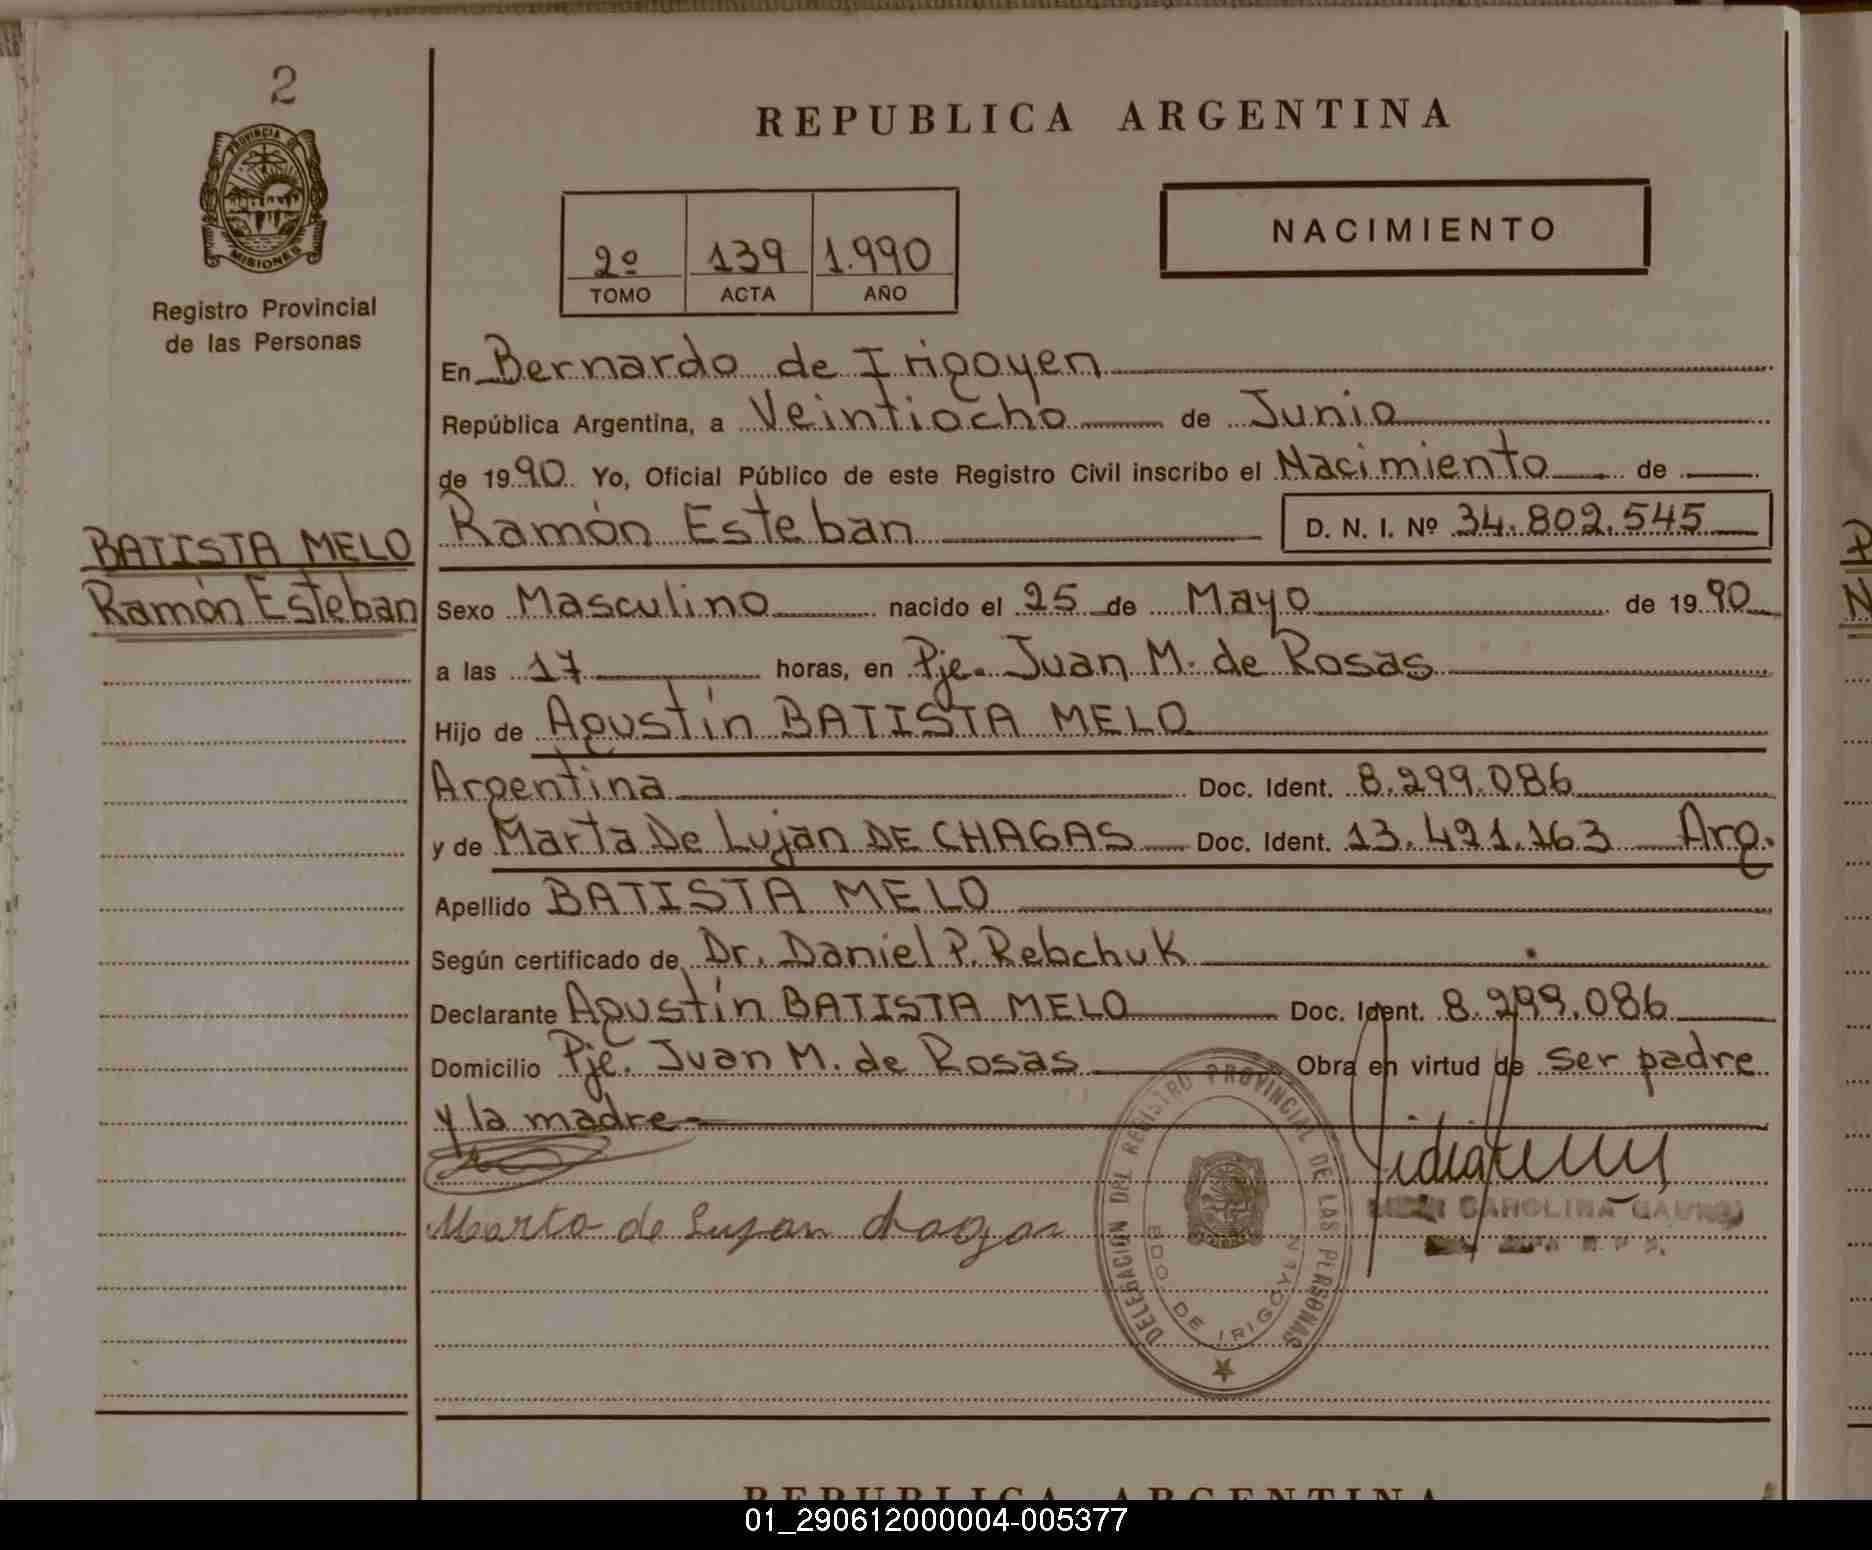 2
PROVINCIA
MISIONES
Registro Provincial
de las Personas
REPUBLICA ARGENTINA
2º 139 1.990
TOMO ACTA AÑO
NACIMIENTO
En Bernardo de Irigoyen
República Argentina, a Veintiocho de Junio
de 1990 Yo, Oficial Público de este Registro Civil inscribo el Nacimiento de
BATISTA MELO
Ramón Esteban
Ramón Esteban D. N. I. Nº 34.802.545
Sexo Masculino nacido el 25 de Mayo de 1990
a las 17 horas, en Pje. Juan M. de Rosas
Hijo de Agustín BATISTA MELO
Argentina Doc. Ident. 8.299.086
y de Marta De Luján DE CHAGAS Doc. Ident. 13.491.163 Arg.
Apellido BATISTA MELO
Según certificado de Dr. Daniel P. Rebchuk
Declarante Agustín BATISTA MELO Doc. Ident. 8.299.086
Domicilio Pje. Juan M. de Rosas Obra en virtud de ser padre
y la madre
Marta de Lujan chagas
DELEGACION DEL REGISTRO PROVINCIAL DE LAS PERSONAS
BDO. DE IRIGOYEN
CAROLINA
REPUBLICA ARGENTINA
01_290612000004-005377